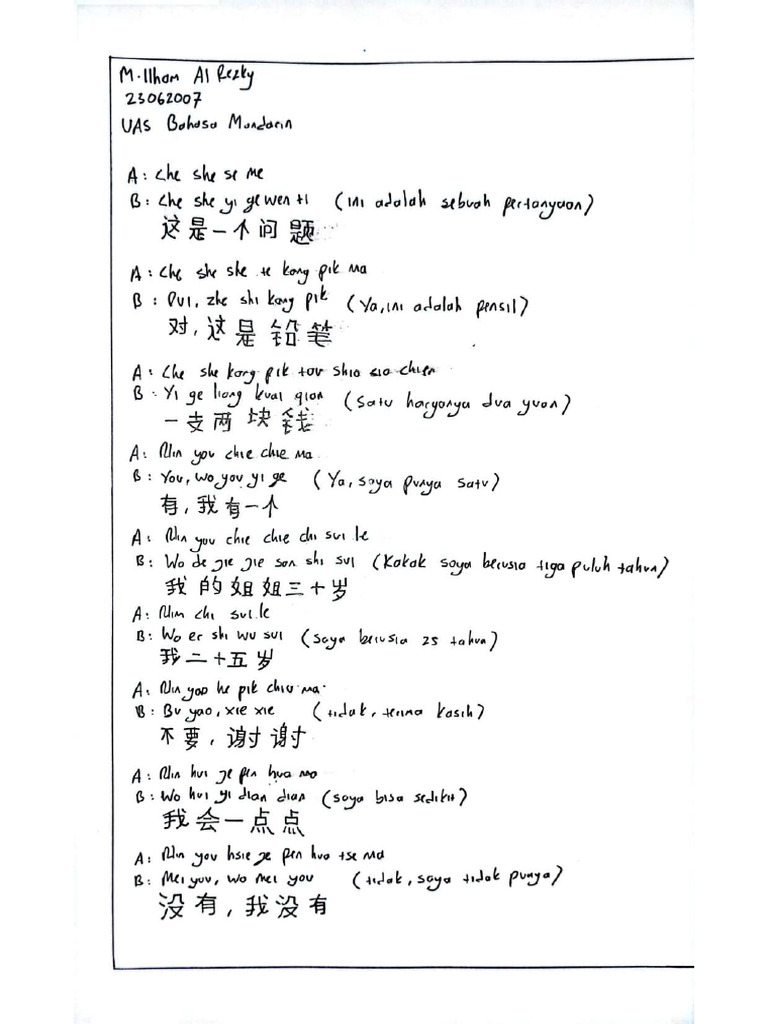 M. Ilham Al Rezky
23062007
UAS Bahasa Mandarin
A: Che she se me
B: Che she yi ge wen ti (ini adalah sebuah pertanyaan)
这是一个问题
A: Che she she te kang pik ma
B: Dui, zhe shi kang pik (Ya, ini adalah pensil)
对,这是铅笔
A: Che she kang pik tou shia sia chien
B: Yi ge liang kuai qian (Satu harganya dua yuan)
一支两块钱
A: Nin you chie chie ma
B: You, wo you yi ge (Ya, saya punya satu)
有,我有一个
A: Nin you chie chie chi sui le
B: Wo de jie jie san shi sui (Kakak saya berusia tiga puluh tahun)
我的姐姐三十岁
A: Nin chi sui le
B: Wo er shi wu sui (saya berusia 25 tahun)
我二十五岁
A: Nin yao he pik chiu ma
B: Bu yao, xie xie (tidak, terima kasih)
不要,谢谢
A: Nin hui je pen hua ma
B: Wo hui yi dian dian (saya bisa sedikit)
我会一点点
A: Nin you hsie je pen huo tse ma
B: Mei you, wo mei you (tidak, saya tidak punya)
没有,我没有